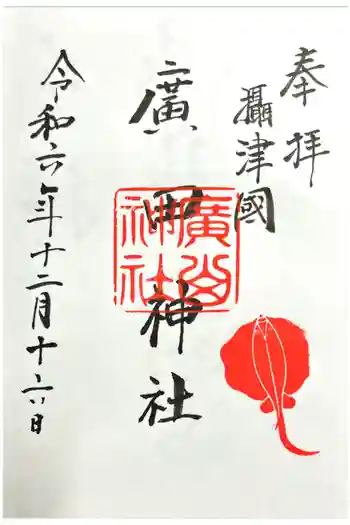 奉拝
攝津國
廣田神社
廣田神社
令和六年十二月十六日